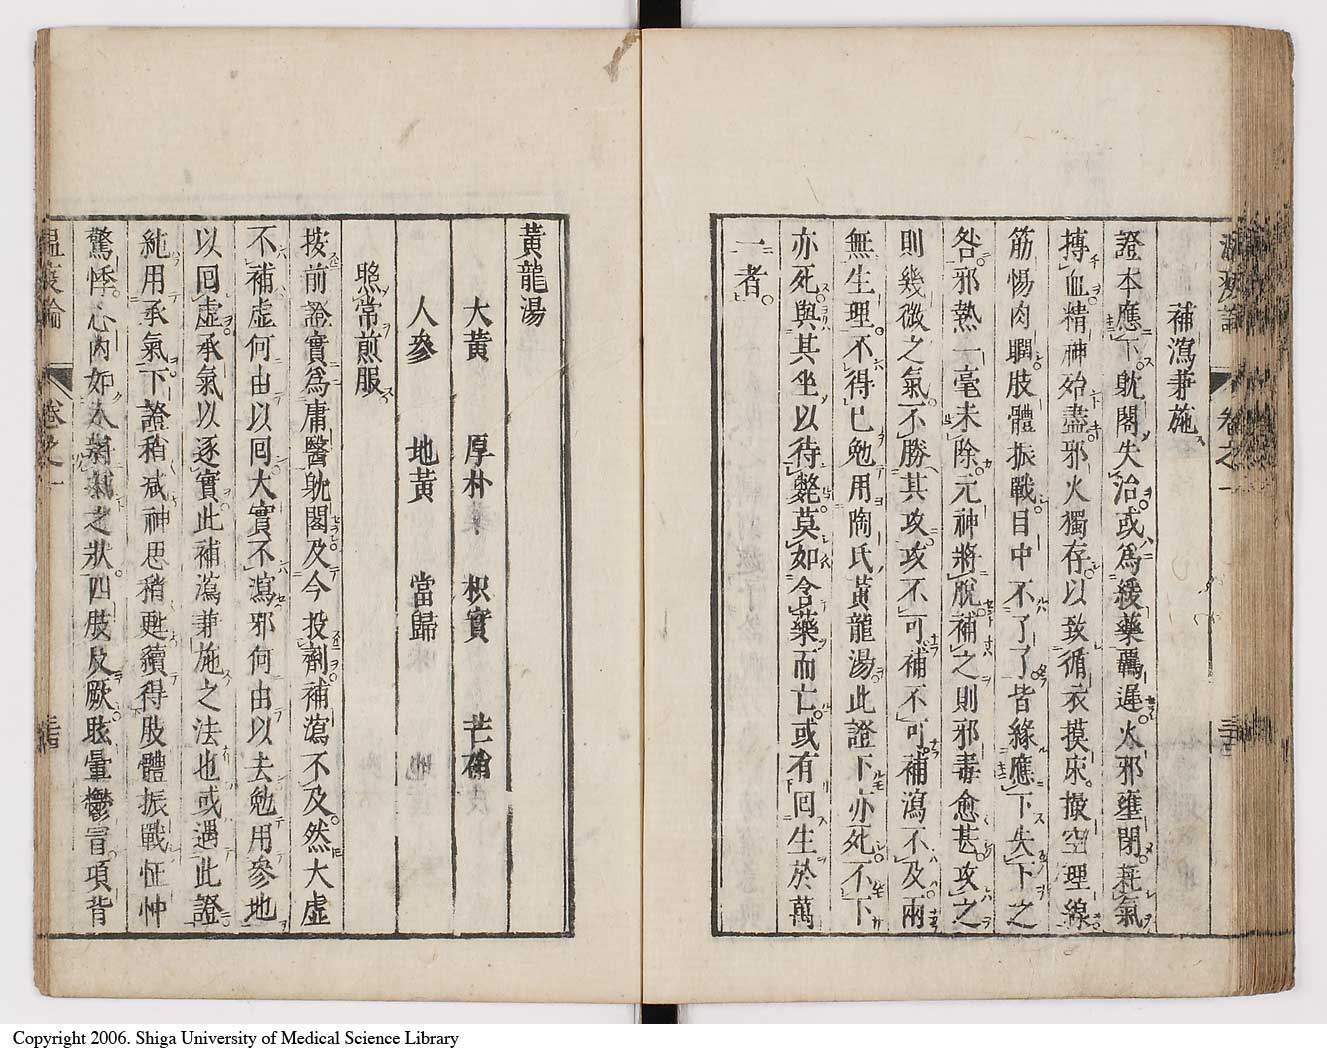 補瀉兼施
證本應下躭閣失治或為緩藥羈遲火邪壅閉耗氣
搏血精神殆盡邪火獨存以致循衣摸床撮空理線
筋惕肉瞤肢體振戰目中不了了皆緣應下失下之
咎邪熱一毫未除元神將脫補之則邪毒愈甚攻之
則幾微之氣不勝其攻攻不可補不可補瀉不及兩
無生理不得已勉用陶氏黃龍湯此證下亦死不下
亦死與其坐以待斃莫如含藥而亡或有回生於萬
一者
黃龍湯
大黃 厚朴 枳實 芒硝
人參 地黃 當歸
照常煎服
按前證實為庸醫躭閣及今投劑補瀉不及然大虛
不補虛何由以回大實不瀉邪何由以去勉用參地
以回虛承氣以逐實此補瀉兼施之法也或遇此證
純用承氣下證稍減神思稍甦續得肢體振戰怔忡
驚悸心內如人將捕之狀四肢反厥眩暈鬱冒項背
溫疫論 卷之一
Copyright 2006. Shiga University of Medical Science Library